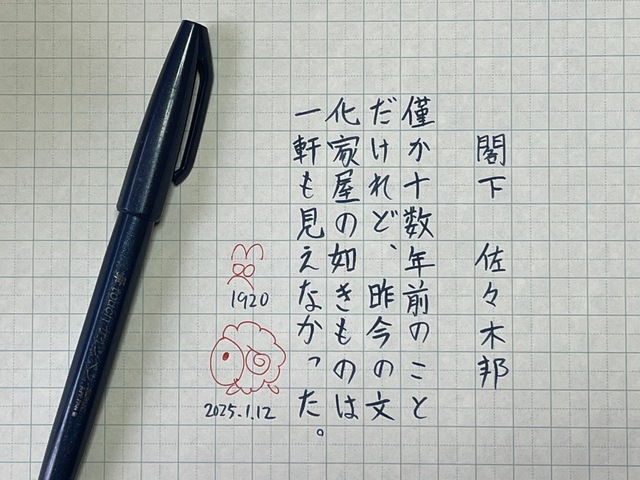 閣下 佐々木邦
僅か十数年前のこと
だけれど、昨今の文
化家屋の如きものは
一軒も見えなかった。
1920
2025.1.12
touch